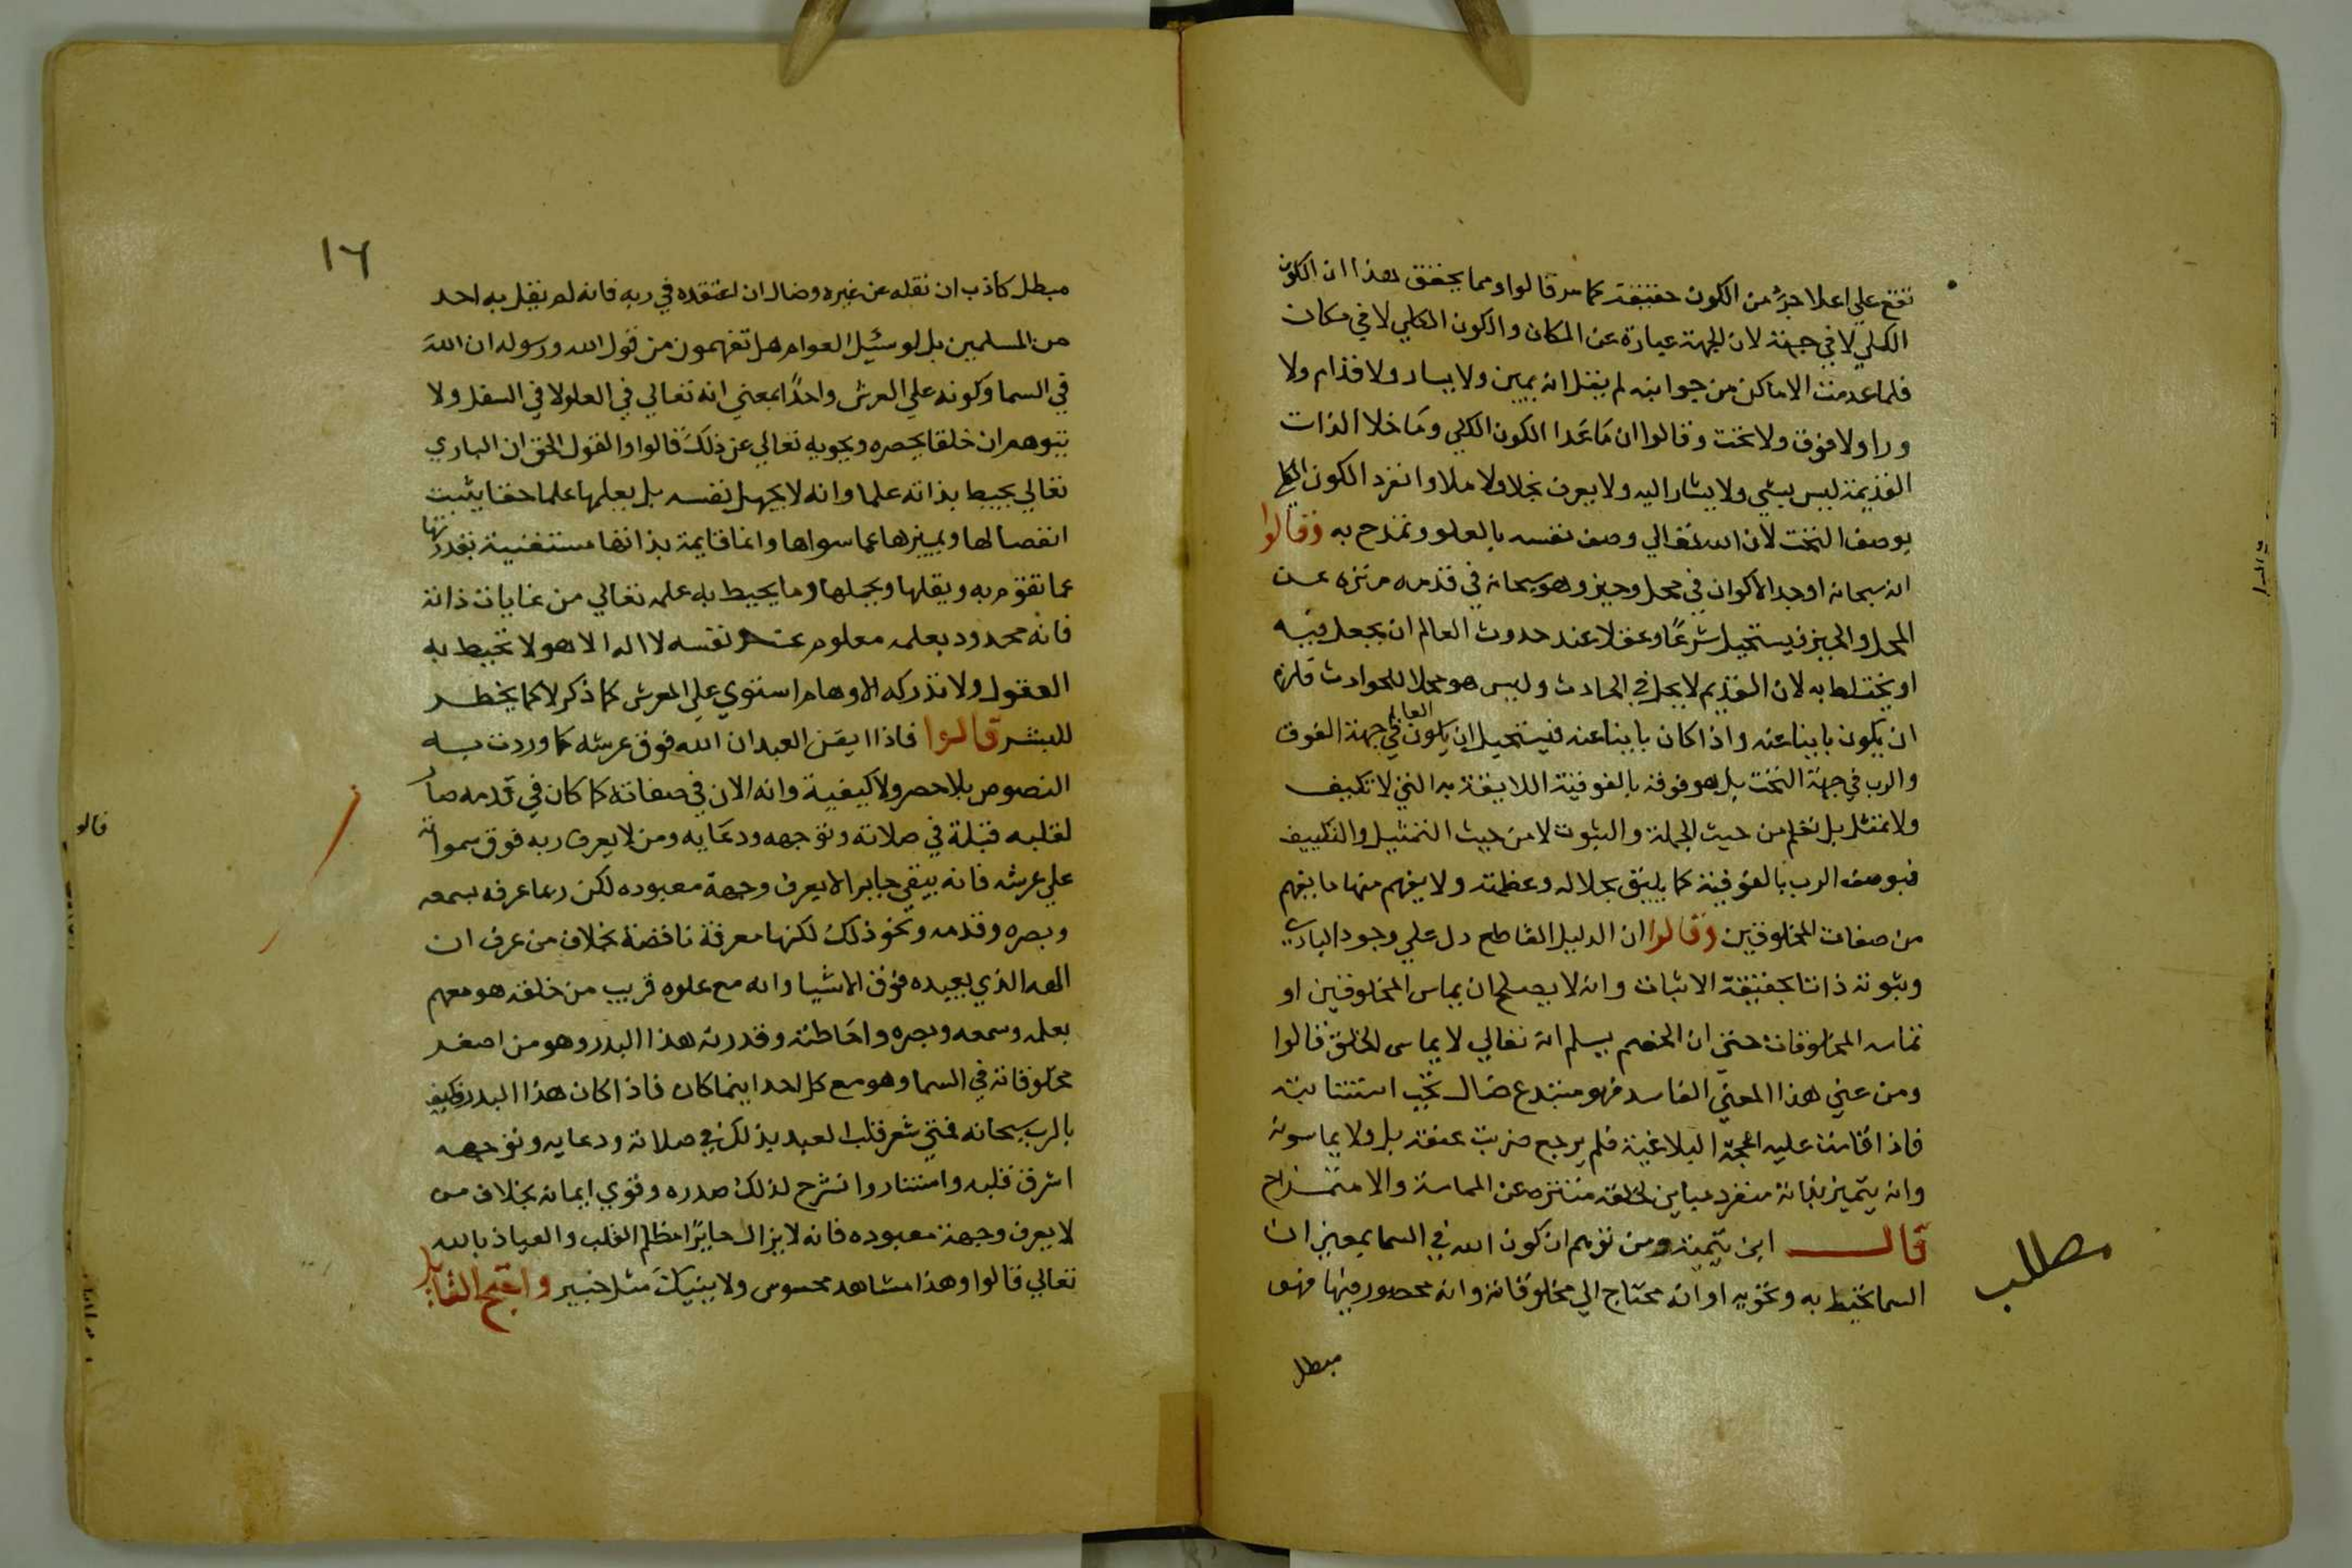 تقع علي اعلا جزء من الكون حقيقة كما مر قالوا ومما يحقق هذا ان الكون
الكلي لا في جهة لان الجهة عبارة عن المكان والكون الكلي لا في مكان
فلما عدمت الاماكن من جوانبه لم يقل انه يمين ولا يسار ولا قدام ولا
ورا ولا فوق ولا تحت وقالوا ان ما عدا الكون الكلي وما خلا الذات
القديمة ليس بشي ولا يشار اليه ولا يعرف بخلا ولا ملا وانفرد الكون الكلي
بوصف التحت لان الله تعالي وصف نفسه بالعلو وتمدح به وقالوا
انه سبحانه اوجد الاكوان في محل وحيز وهو سبحانه في قدمه منزه عن
المحل والحيز فيستحيل شرعًا وعقلا عند حدوث العالم ان يحل فيه
او يختلط به لان القديم لا يحل في الحادث وليس هو محلا للحوادث فلزم
ان يكون باينا عنه واذا كان باينا عنه فيستحيل ان يكون العالم في جهة الفوق
والرب في جهة التحت بل هو فوقه بالفوقية اللايقة به التي لا تكيف
ولا تمثل بل تعلم من حيث الجملة والثبوت لا من حيث التمثيل والتكييف
فيوصف الرب بالفوقية كما يليق بجلاله وعظمته ولا يفهم منها ما يفهم
من صفات المخلوقين وقالوا ان الدليل القاطع دل علي وجود الباري
وثبوته ذاتا بحقيقة الاثبات وانه لا يصلح ان يماس المخلوقين او
تماسه المخلوقات حتي ان الخصم يسلم انه تعالي لا يماس الخلق قالوا
ومن عني هذا المعني الفاسد فهو مبتدع ضال تجب استتابته
فاذا اقامت عليه الحجة البلاغية فلم يرجع ضربت عنقه بل ولا يماسونه
وانه يتميز بذاته منفرد مباين لخلقه متنزه عن المماسة والامتزاج
قال ابن تيمية ومن توهم ان كون الله في السما بمعني ان
السما تحيط به وتحويه او انه محتاج الي مخلوقاته وانه محصور فيها فهو
مطلب
مبطل
١٦
مبطل كاذب ان نقله عن غيره وضال ان اعتقده في ربه فانه لم يقل به احد
من المسلمين بل لو سئيل العوام هل تفهمون من قول الله ورسوله ان الله
في السما وكونه علي العرش واحدًا بمعني انه تعالي في العلو لا في السفل ولا
يتوهم ان خلقا يحصره ويحويه تعالي عن ذلك قالوا والقول الحق ان الباري
تعالي يحيط بذاته علما وانه لا يجهل نفسه بل يعلمها علما حقا يثبت
انفصالها ويميزها عما سواها وانها قايمة بذاتها مستغنية بقدرتها
عما تقوم به ويقلها ويحملها وما يحيط به علمه تعالي من غايات ذاته
فانه محدود بعلمه معلوم عند نفسه لا اله الا هو لا تحيط به
العقول ولا تدركه الاوهام استوي علي العرش كما ذكر لا كما يخطر
للبشر قالوا فاذا ايقن العبد ان الله فوق عرشه كما وردت به
النصوص بلا حصر ولا كيفية وانه الان في صفاته كما كان في قدمه صار
لقلبه قبلة في صلاته وتوجهه ودعايه ومن لا يعرف ربه فوق سمواته
علي عرشه فانه يبقي حايرا لا يعرف وجهة معبوده لكن ربما عرفه بسمعه
وبصره وقدمه ونحو ذلك لكنها معرفة ناقصة بخلاف من عرف ان
الهه الذي يعبده فوق الاشيا وانه مع علوه قريب من خلقه هو معهم
بعلمه وسمعه وبصره واحاطته وقدرته هذا البدر وهو من اصغر
مخلوقاته في السما وهو مع كل احد اينما كان فاذا كان هذا البدر فكيف
بالرب سبحانه فمتي شعر قلب العبد بذلك في صلاته ودعايه وتوجهه
اشرق قلبه واستنار وانشرح لذلك صدره وقوي ايمانه بخلاف من
لا يعرف وجهة معبوده فانه لا يزال حايرًا مظلم القلب والعياذ بالله
تعالي قالوا وهذا مشاهد محسوس ولا ينبيك مثل خبير واحتج القايل
قالو